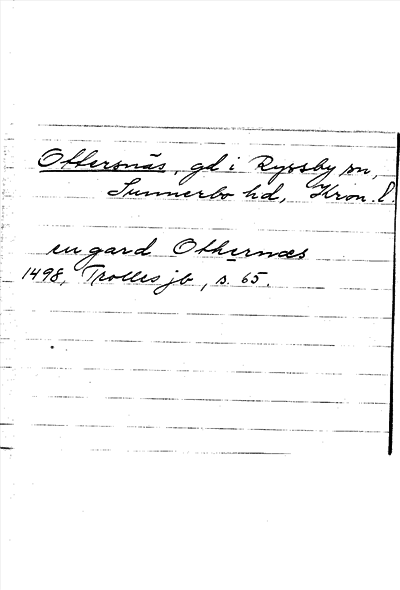 Ottersnäs, gd i Ryssby sn,
Sunnerbo hd, Kron. l.
en gard Othernæs
1498, Trolles jb, s. 65.